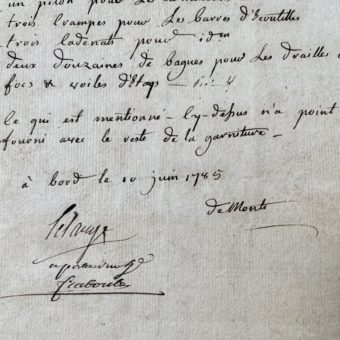 un piton pour Les
trois crampes pour Les barres d'Ecoutilles
trois Cadenats pour idm
deux douzaines de bagues pour Les drailles d
focs & voiles d'Etays
Ce qui est mentionné Cy-dessus n'a point
fourni avec le reste de la garniture
à bord le 10 juin 1785
de Monts